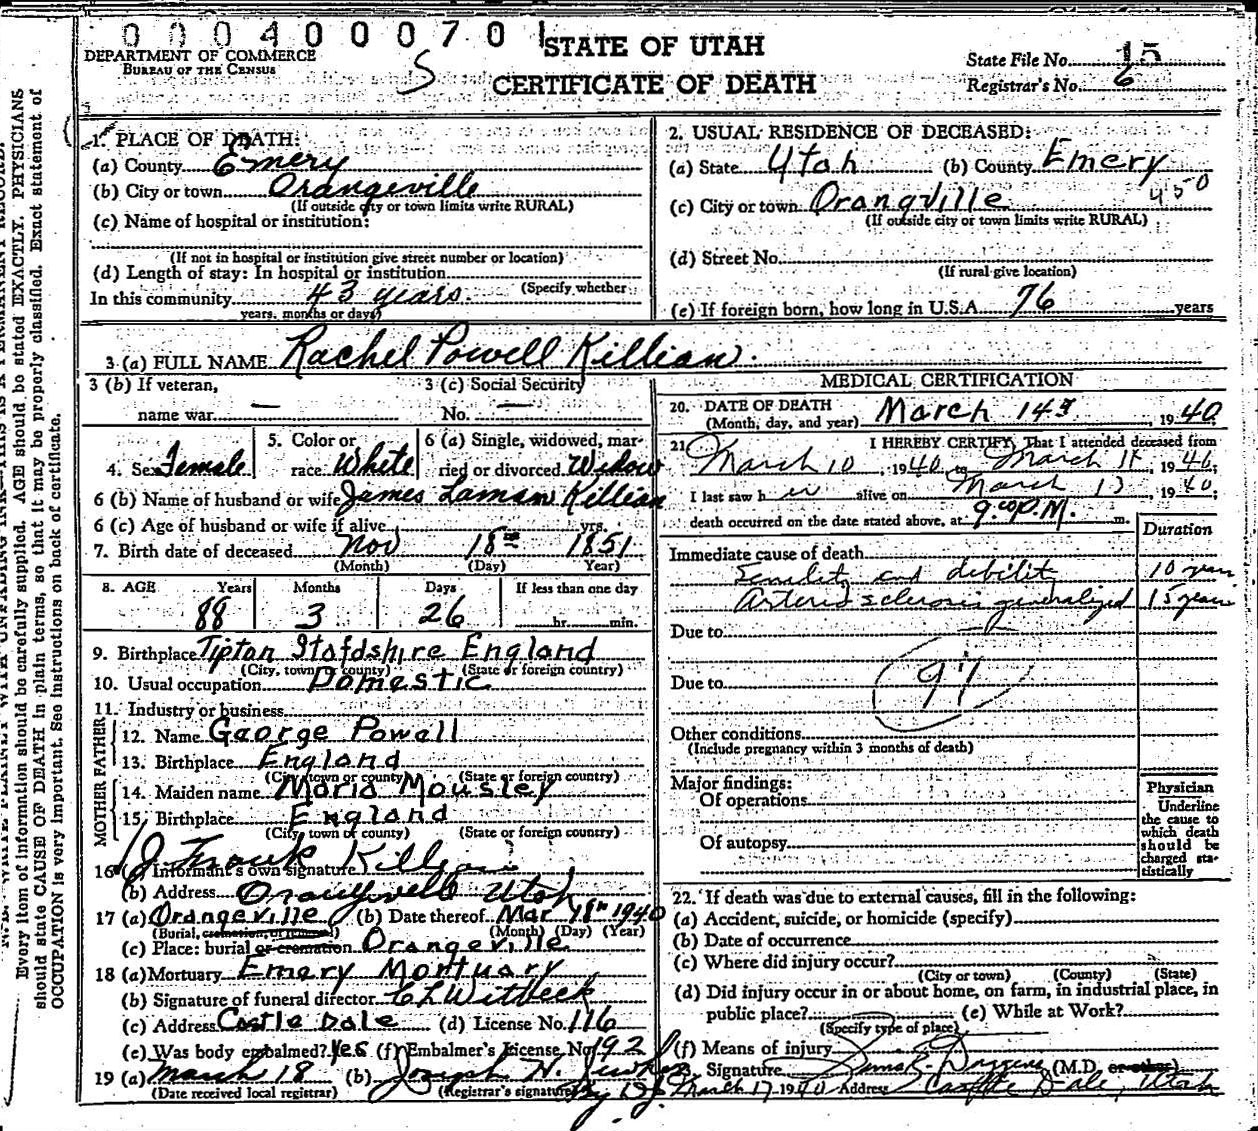 0 0 0 4 0 0 0 7 0 1
STATE OF UTAH
CERTIFICATE OF DEATH
DEPARTMENT OF COMMERCE
BUREAU OF THE CENSUS
S
State File No. 15
Registrar's No. 6
Every item of information should be carefully supplied. AGE should be stated EXACTLY. PHYSICIANS
should state CAUSE OF DEATH in plain terms, so that it may be properly classified. Exact statement of
OCCUPATION is very important. See instructions on back of certificate.
1. PLACE OF DEATH:
(a) County Emery
(b) City or town Orangeville
(If outside city or town limits write RURAL)
(c) Name of hospital or institution:
(If not in hospital or institution give street number or location)
(d) Length of stay: In hospital or institution
(Specify whether
In this community 43 years.
years, months or days)
2. USUAL RESIDENCE OF DECEASED:
(a) State Utah (b) County Emery
450
(c) City or town Orangville
(If outside city or town limits write RURAL)
(d) Street No.
(If rural give location)
(e) If foreign born, how long in U.S.A. 76 years
3 (a) FULL NAME Rachel Powell Killian.
3 (b) If veteran, name war —
3 (c) Social Security No. —
4. Sex Female
5. Color or race White
6 (a) Single, widowed, married or divorced Widow
6 (b) Name of husband or wife James Laman Killian
6 (c) Age of husband or wife if alive yrs.
7. Birth date of deceased Nov 18th 1851
(Month) (Day) Year)
8. AGE Years Months Days If less than one day
88 3 26 hr. min.
9. Birthplace Tiptan Stofdshire England
(City, town or county) (State or foreign country)
10. Usual occupation Domestic
11. Industry or business
FATHER
12. Name George Powall
13. Birthplace England
(City, town or county) (State or foreign country)
MOTHER
14. Maiden name Maria Mousley
15. Birthplace England
(City, town or county) (State or foreign country)
16 J Frank Killian
Informant's own signature
(b) Address Orangeville Utah
17 (a) Orangeville (b) Date thereof Mar 18th 1940
(Burial, cremation, or removal) (Month) (Day) (Year)
(c) Place: burial or cremation Orangeville
18 (a) Mortuary Emery Mortuary
(b) Signature of funeral director C L Witbeck
(c) Address Castle Dale (d) License No. 116
(e) Was body embalmed? Yes (f) Embalmer's License No. 192
19 (a) March 18 (b) Joseph H.
(Date received local registrar) (Registrar's signature)
MEDICAL CERTIFICATION
20. DATE OF DEATH March 14th, 1940
(Month, day, and year)
21 I HEREBY CERTIFY, That I attended deceased from
March 10, 1940, to March 14, 1940;
I last saw her alive on March 13, 1940;
death occurred on the date stated above, at 9:00 P.M. m.
Duration
Immediate cause of death
Senility and debility 10 years
Arterio sclerosis generalized 15 years
Due to
97
Due to
Other conditions
(Include pregnancy within 3 months of death)
Major findings:
Of operations
Of autopsy
Physician
Underline
the cause to
which death
should be
charged sta-
tistically
22. If death was due to external causes, fill in the following:
(a) Accident, suicide, or homicide (specify)
(b) Date of occurrence
(c) Where did injury occur?
(City or town) (County) (State)
(d) Did injury occur in or about home, on farm, in industrial place, in
public place? (e) While at Work?
(Specify type of place)
(f) Means of injury
Signature (M.D. or other)
March 17 1940 Address Castle Dale, Utah